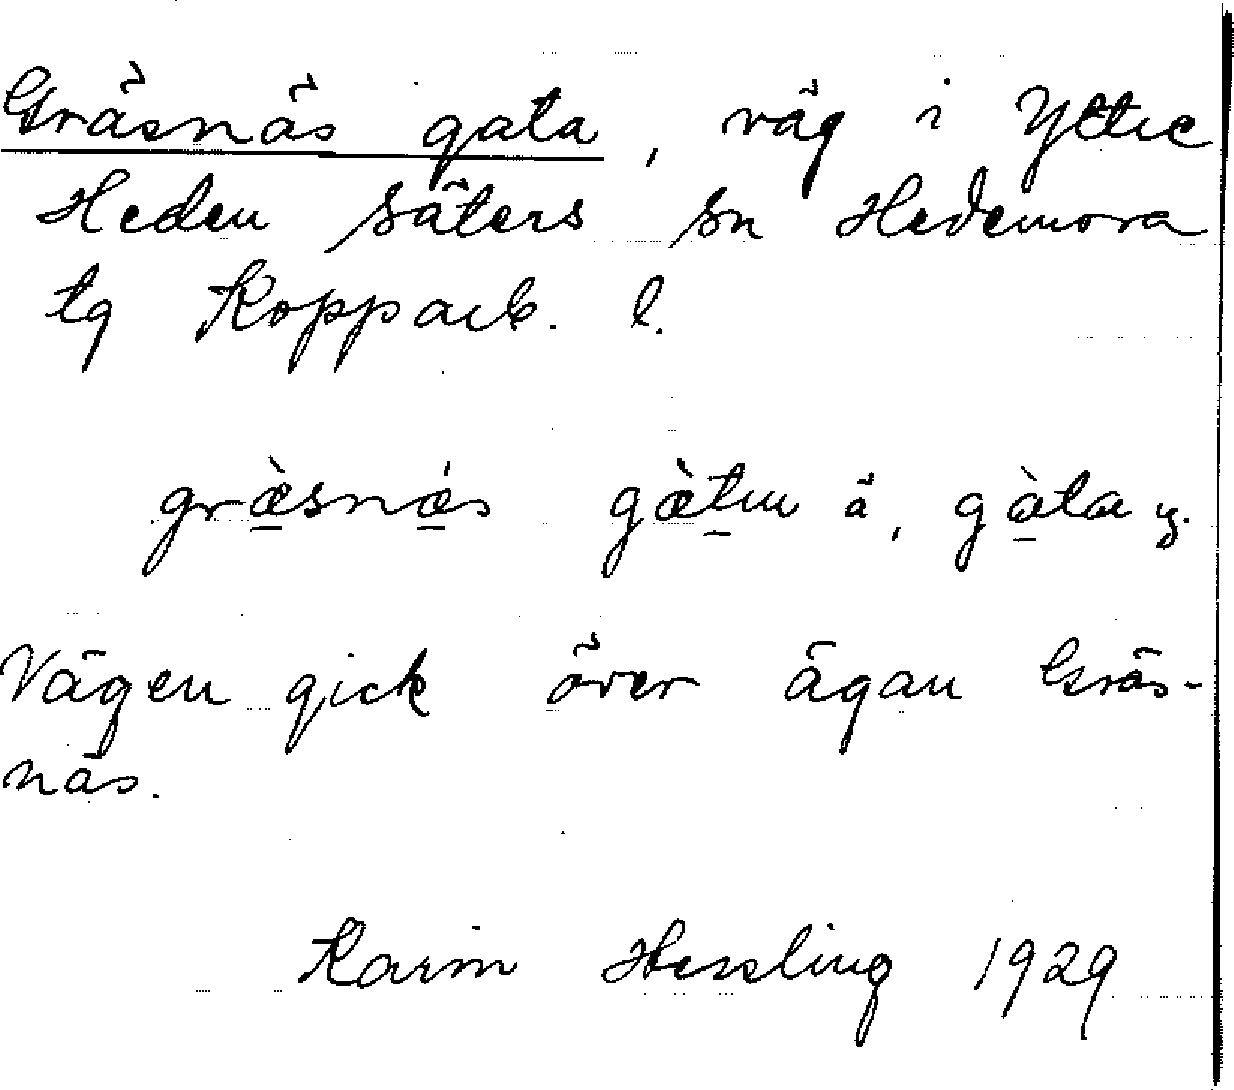 Gräsnäs gata, väg i Yttre
Heden Säters sn Hedemora
tg Kopparb. l.
græ̀snǽs gæ̀tu ä, gàta y.
Vägen gick över ägan Gräs-
näs.
Karin Hessling 1929